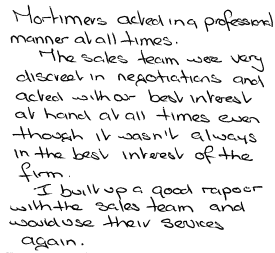 Mortimers acted in a professional
manner at all times.
The sales team were very
discreet in negotiations and
acted with our best interest
at hand at all times even
though it wasn't always
in the best interest of the
firm.
I built up a good rapoor
with the sales team and
would use their services
again.